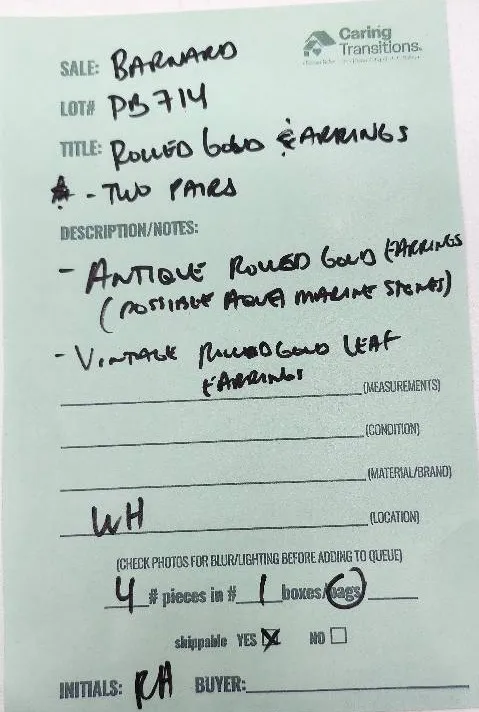 Caring
Transitions.
SALE: BARNARD
LOT# PB714
TITLE: ROLLED GOLD EARRINGS
- TWO PAIRS
DESCRIPTION/NOTES:
- ANTIQUE ROLLED GOLD EARRINGS
(POSSIBLE AQUA MARINE STONES)
- VINTAGE ROLLED GOLD LEAF
EARRINGS
(MEASUREMENTS)
(CONDITION)
(MATERIAL/BRAND)
WH (LOCATION)
(CHECK PHOTOS FOR BLUR/LIGHTING BEFORE ADDING TO QUEUE)
4 # pieces in # 1 boxes/bags
skippable YES ☒ NO ☐
INITIALS: RH BUYER: